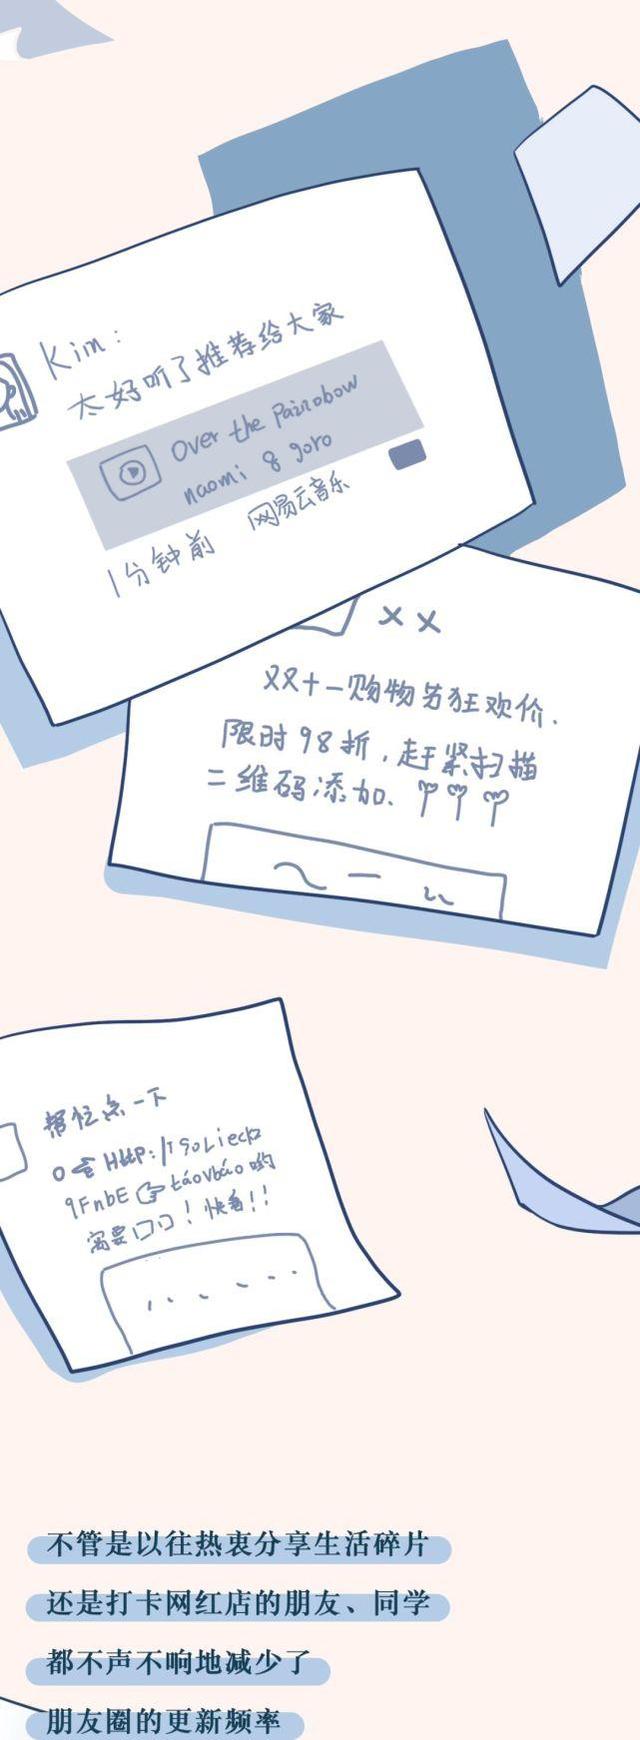 Kim：
太好听了推荐给大家
Over the Painobow
naomi & goro
1分钟前 网易云音乐
××
双十一购物节狂欢价.
限时98折，赶紧扫描
二维码添加.
帮忙点一下
9FnbE táovbáo 哟
需要口口！快看!!
不管是以往热衷分享生活碎片
还是打卡网红店的朋友、同学
都不声不响地减少了
朋友圈的更新频率